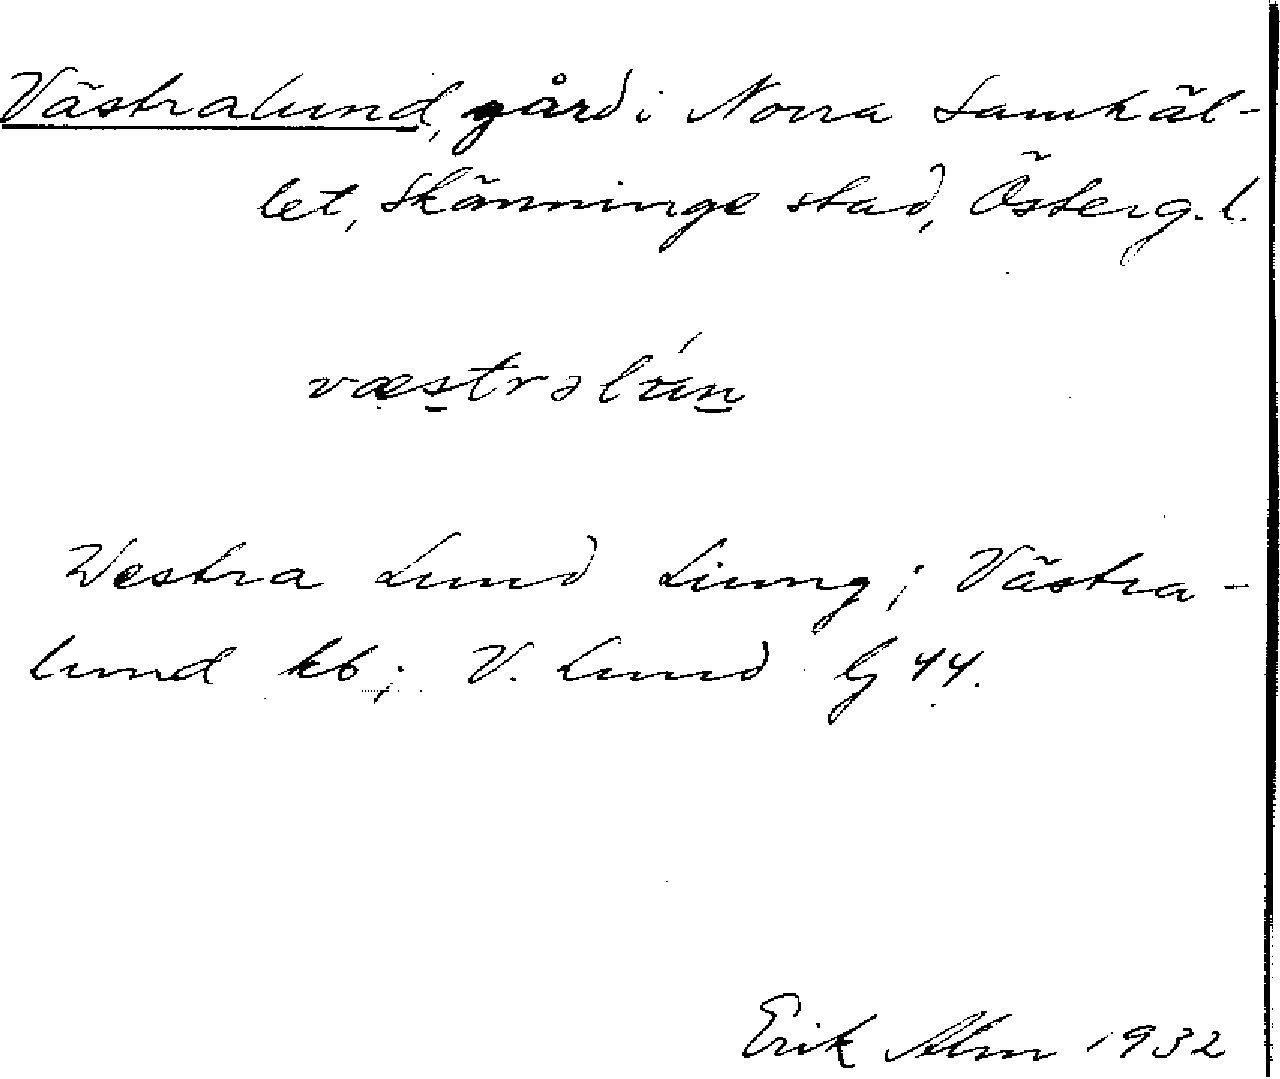 Västralund, gård i Norra Samhäl-
let, Skänninge stad, Österg. l.
væstrəlún
Westra Lund Liung; Västra-
lund kb; V. Lund Gj 44.
Erik Alm 1932